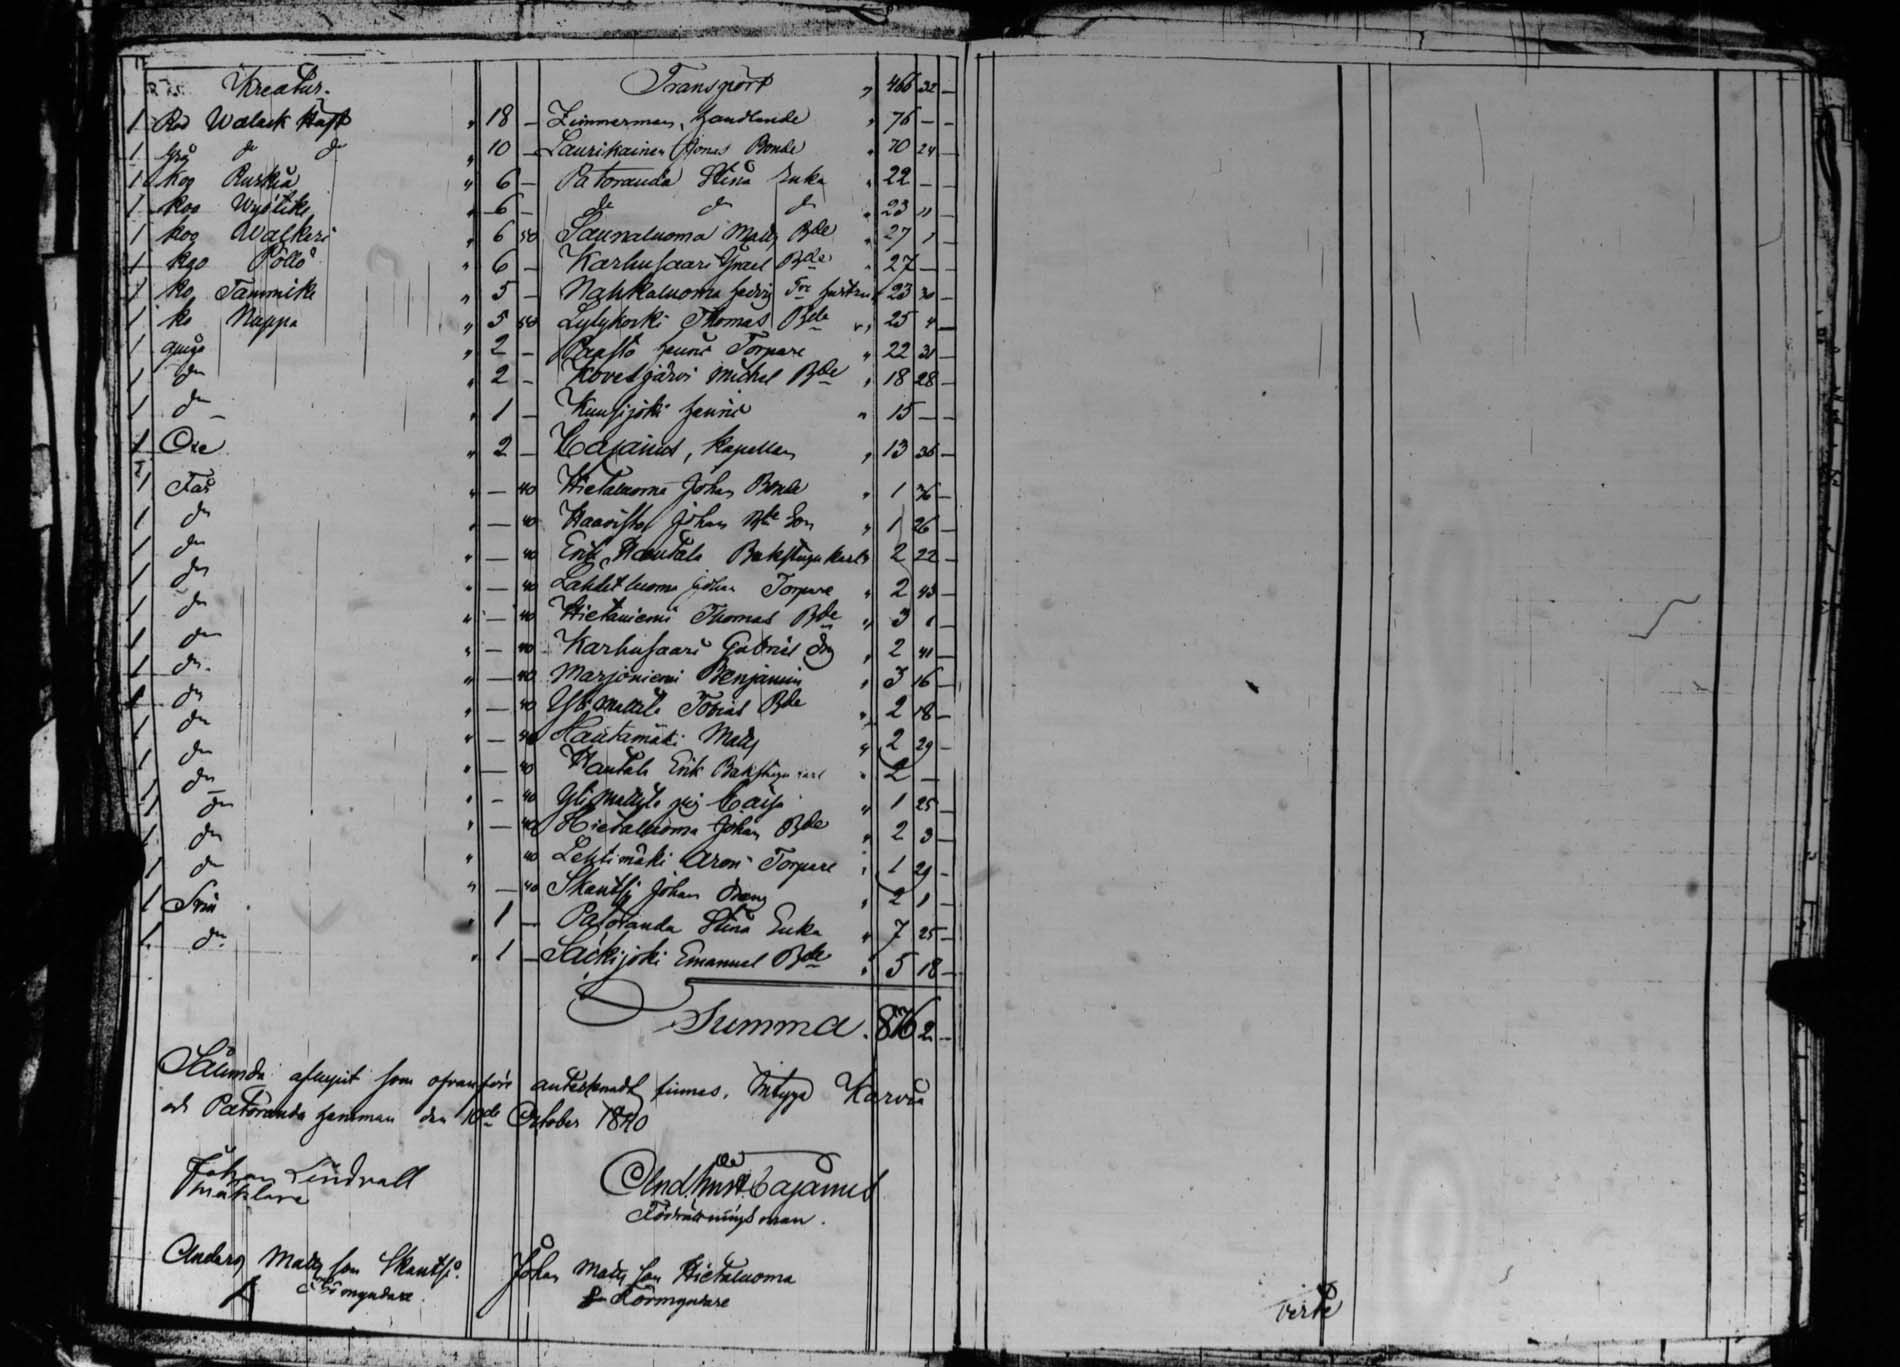 Kreatur. Transport " 466 32 —
1 Röd Walack Häst " 18 — Zimmerman, handlande " 76 — —
1 Grå do do " 10 — Laurikainen Jonas Bonde " 70 24 —
1 Kog Ruskia " 6 — Patoranda Stina Enka " 22 — —
1 Kog Wyötike " 6 — do do do " 23 11
1 kog Walkeri " 6 50 Saunaluoma Matts Bde " 27 1 —
1 kgo Pöllö " 6 — Karhusaari Israel Bde " 27 — —
1 ko Tammike " 5 — Nahkaluoma Hedvig Tre hustru " 23 30 —
1 ko Nappa " 5 50 Lylykoski Thomas Bde " 25 4 —
1 quiga " 2 — Raasto Henric Torpare " 22 31 —
1 do " 2 — Kovesjärvi Michel Bde " 18 28 —
1 do " 1 — Kuusijoki Henric " 15 — —
1 Oxe " 2 — Cajanus, Kapellan " 13 36 —
1 Får " — 40 Hietaluoma Johan Bonde " 1 36 —
1 do " — 40 Haavisto Johan Bde Son " 1 26 —
1 do " — 40 Erik Hautala Backstugukarl " 2 22 —
1 do " — 40 Lahdet luoma Johan Torpare " 2 43 —
1 do " — 40 Hietaniemi Thomas Bde " 3 1 —
1 do " — 40 Karhusaari Gabriel Drg " 2 41 —
1 do " — 40 Marjoniemi Benjamin " 3 16 —
1 do " — 40 Yli Mattila Tobias Bde " 2 18 —
1 do " — 40 Hautamäki Matts " 2 29 —
1 do " — 40 Hautala Erik Backstugukarl " 2 —
1 do " — 40 Yli Mattila pig Caisa " 1 25 —
1 do " — 40 Hietaluoma Johan Bde " 2 3 —
1 do " 40 Lehtimäki Aron Torpare " 1 29 —
1 do " — 40 Skantsi Johan Dreng " 2 1 —
1 Svin " 1 — Patoranda Stina Enka " 7 25 —
1 do " 1 — Säckijoki Emanuel Bde " 5 18 —
Summa. 876 2 —
Sålunda aflupit som ofvanföre antecknadt finnes, Intyga Karvia
och Patoranda hemman den 10de October 1840
Johan Lindvall And. Gust. Cajanus
Mäklare Förrättningsman.
Anders Matts son Skantsi. Johan Matts son Hietaluoma
Förmyndare. Förmyndare
verte